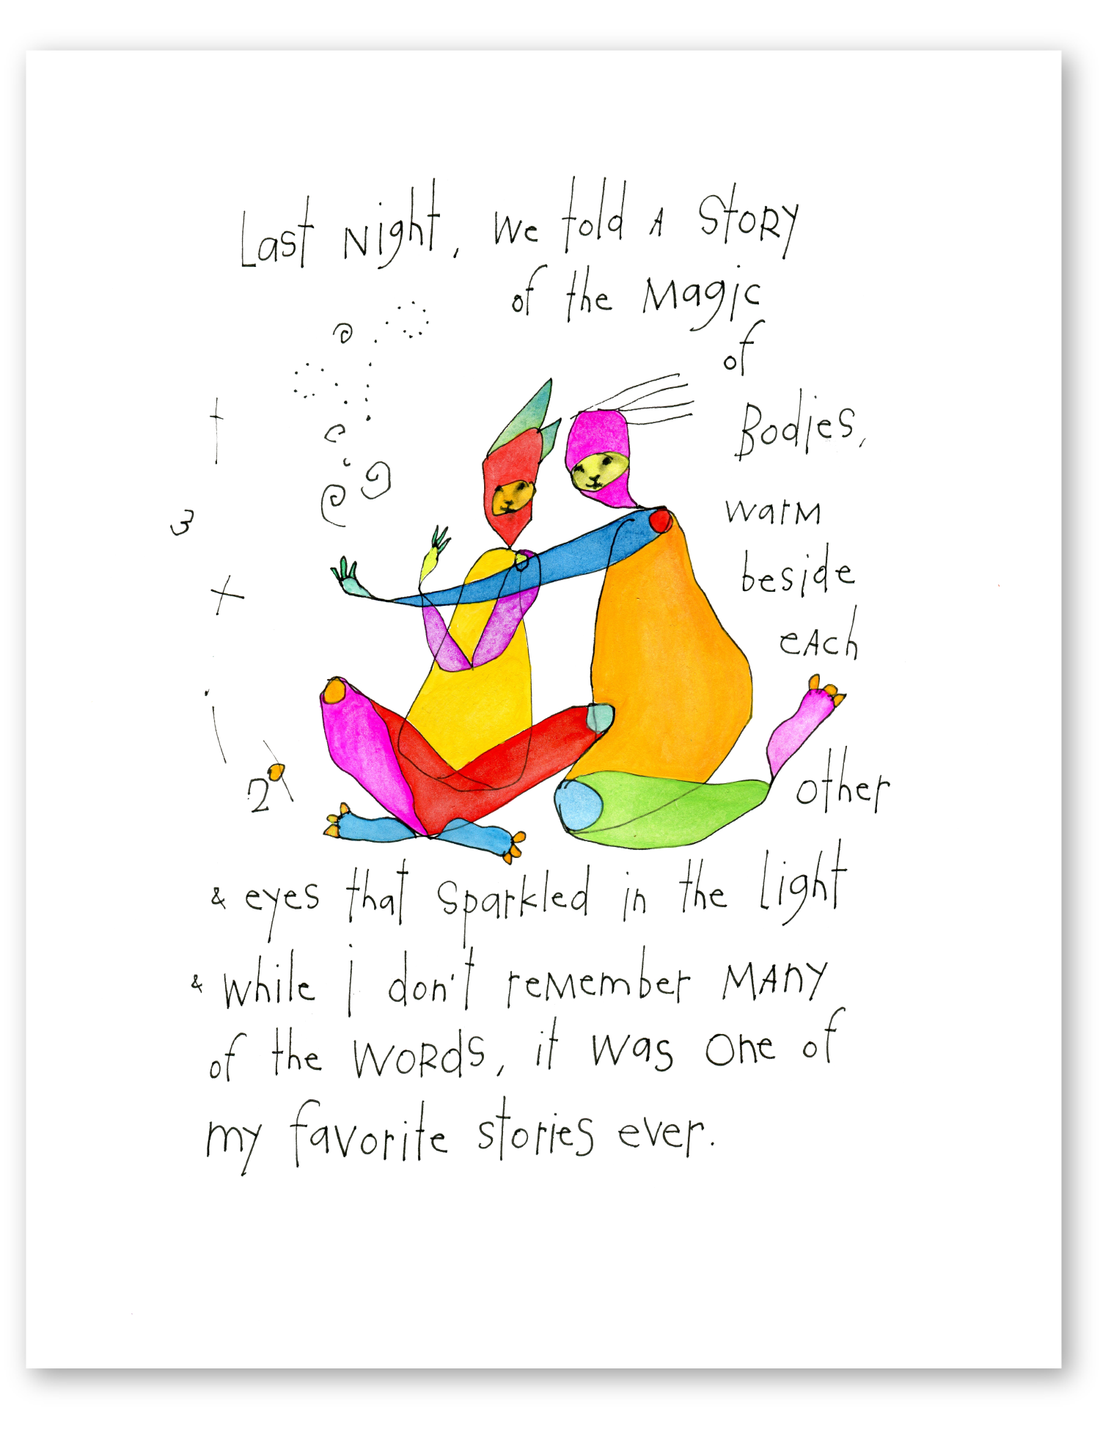 Last Night, we told A StORY
of the Magic
of
Bodies,
warm
beside
eAch
3
other
2
& eyes that sparkled in the light
& while i don't reMember MANy
of the WORdS, it was One of
my favorite stories ever.